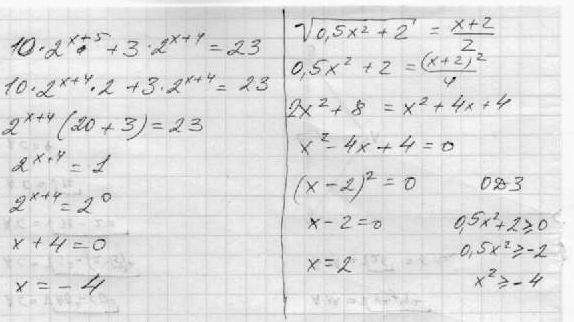 10·2^(x+5) + 3·2^(x+4) = 23
10·2^(x+4)·2 + 3·2^(x+4) = 23
2^(x+4)(20+3) = 23
2^(x+4) = 1
2^(x+4) = 2^0
x + 4 = 0
x = -4
√(0,5x² + 2) = (x+2)/2
0,5x² + 2 = (x+2)²/4
2x² + 8 = x² + 4x + 4
x² - 4x + 4 = 0
(x-2)² = 0
x - 2 = 0
x = 2
ОДЗ
0,5x² + 2 ≥ 0
0,5x² ≥ -2
x² ≥ -4